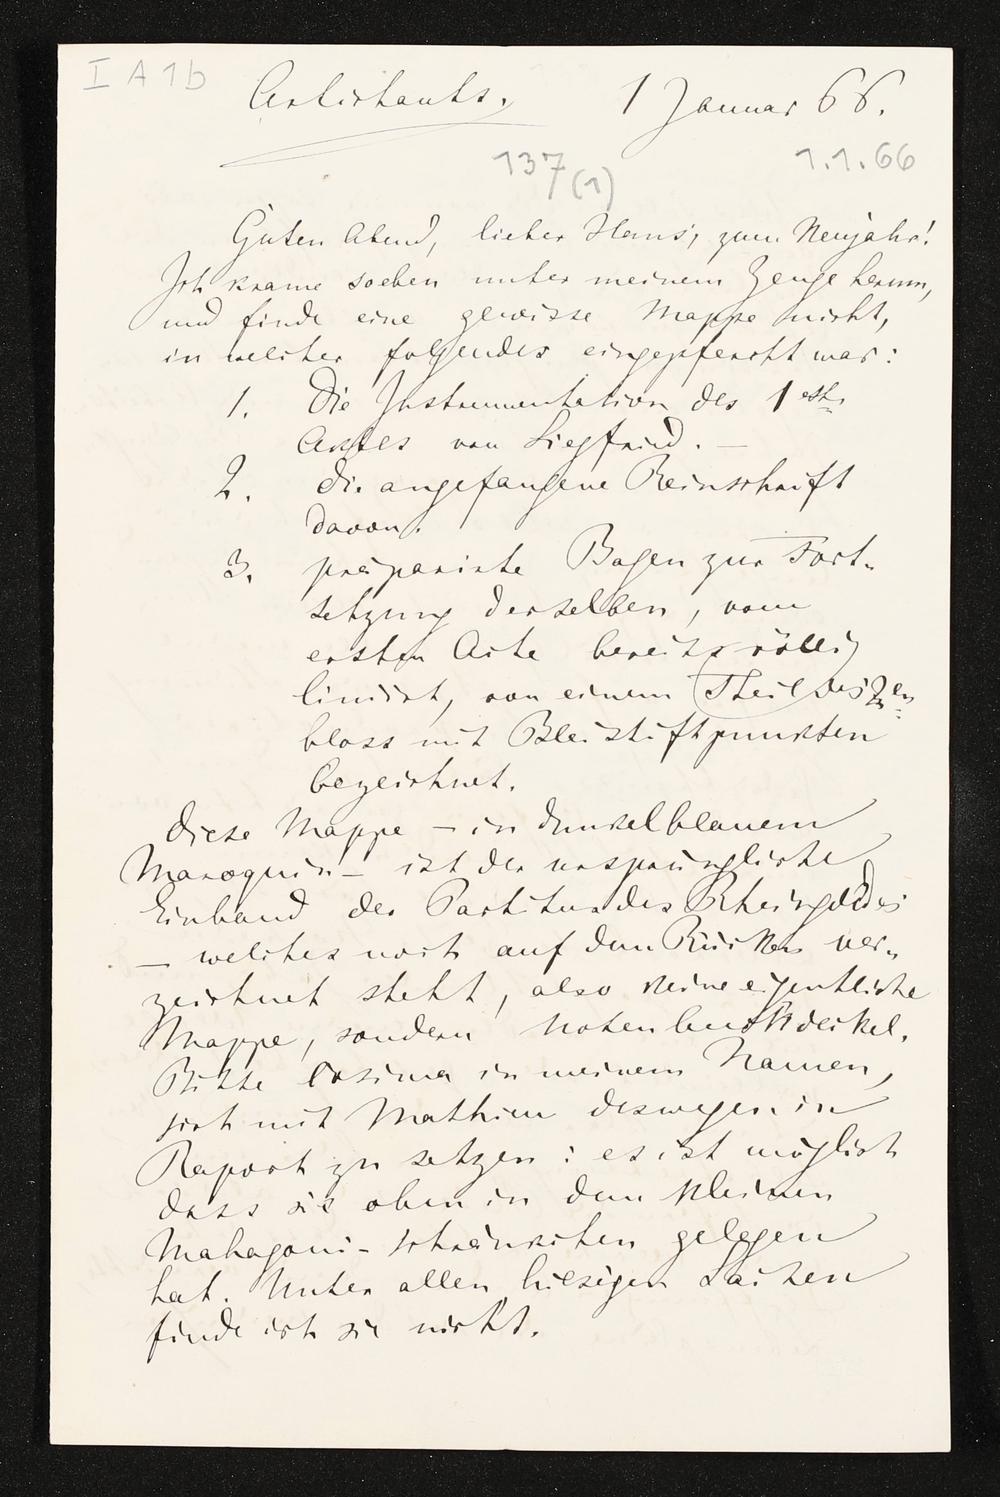 I A 1b
Artichauts. 1 Januar 66.
137(1) 1.1.66
Guten Abend, lieber Hans, zum Neujahr!
Ich krame soeben unter meinem Zeuge herum,
und finde eine gewisse Mappe nicht,
in welcher folgendes eingepfercht war:
1. Die Instrumentation des 1 est.
Aktes von Siegfried. —
2. die angefangene Reinschrift
davon.
3. präparirte Bogen zur Fort-
setzung derselben, vom
ersten Acte bereits völlig
liniirt, von einem Theil des 2en
bloss mit Bleistiftpunkten
bezeichnet.
Diese Mappe — in dunkelblauem
Maroquin — ist der ursprüngliche
Einband der Partitur des Rheingoldes
— welches noch auf dem Rücken ver-
zeichnet steht, also keine eigentliche
Mappe, sondern Notenbuchdeckel.
Bitte Cosima in meinem Namen,
sich mit Mathieu deswegen in
Raport zu setzen: es ist möglich
dass sie oben in dem kleinen
Mahagoni-schränkchen gelegen
hat. Unter allen hiesigen Sachen
finde ich sie nicht.